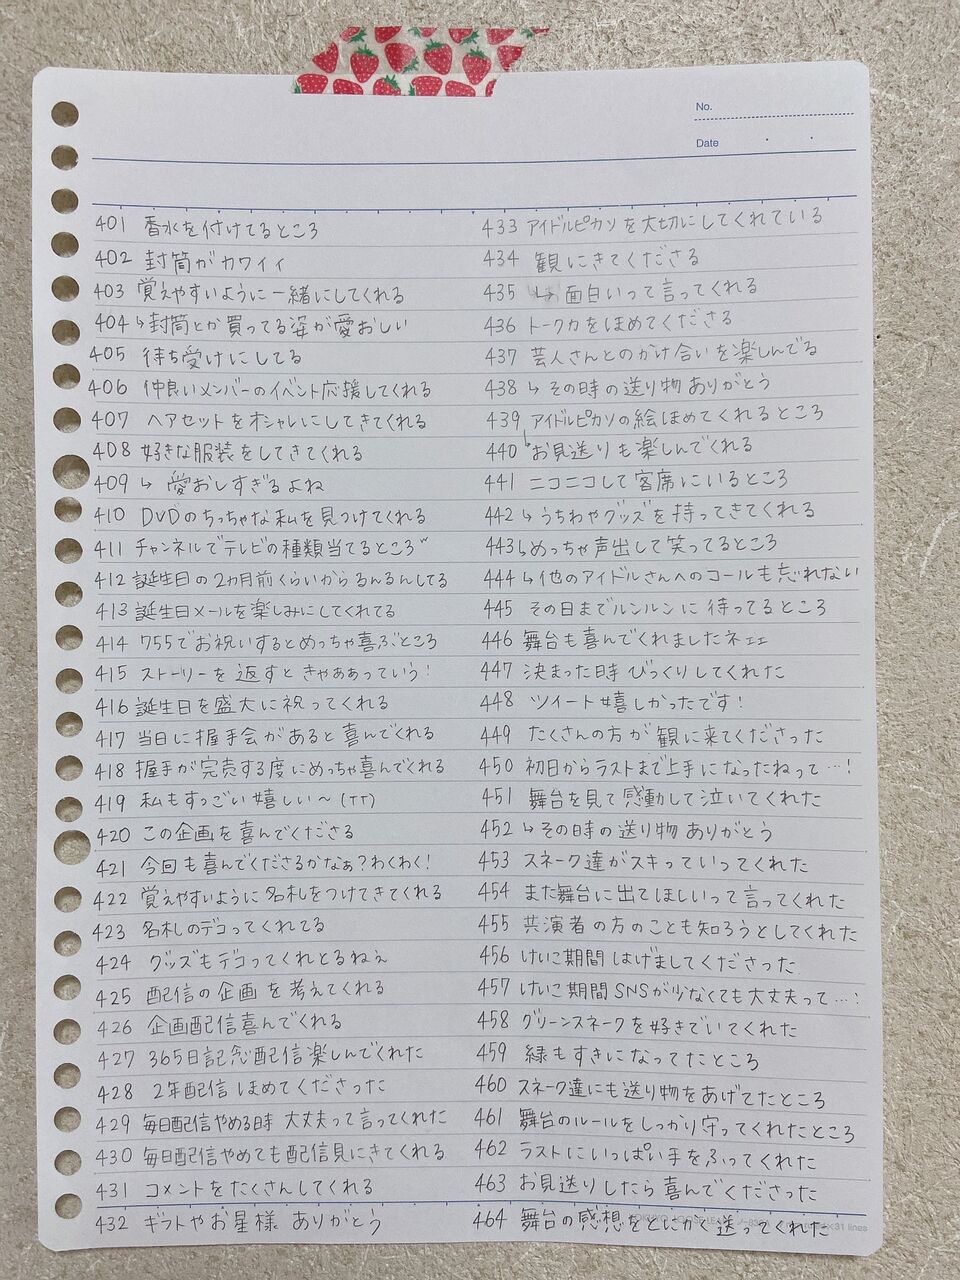 No.
Date
401 香水を付けてるところ
402 封筒がカワイイ
403 覚えやすいように一緒にしてくれる
404 ↳封筒とか買ってる姿が愛おしい
405 待ち受けにしてる
406 仲良いメンバーのイベント応援してくれる
407 ヘアセットをオシャレにしてきてくれる
408 好きな服装をしてきてくれる
409 ↳ 愛おしすぎるよね
410 DVDのちっちゃな私を見つけてくれる
411 チャンネルでテレビの種類当てるところ
412 誕生日の2ヵ月前くらいからるんるんしてる
413 誕生日メールを楽しみにしてくれてる
414 755でお祝いするとめっちゃ喜ぶところ
415 ストーリーを返すときゃああっていう!
416 誕生日を盛大に祝ってくれる
417 当日に握手会があると喜んでくれる
418 握手が完売する度にめっちゃ喜んでくれる
419 私もすっごい嬉しい〜(TT)
420 この企画を喜んでくださる
421 今回も喜んでくださるかなぁ?わくわく!
422 覚えやすいように名札をつけてきてくれる
423 名札のデコってくれてる
424 グッズもデコってくれとるねぇ
425 配信の企画を考えてくれる
426 企画配信喜んでくれる
427 365日記念配信楽しんでくれた
428 2年配信ほめてくださった
429 毎日配信やめる時 大丈夫って言ってくれた
430 毎日配信やめても配信見にきてくれる
431 コメントをたくさんしてくれる
432 ギフトやお星様 ありがとう
433 アイドルピカソを大切にしてくれている
434 観にきてくださる
435 ↳面白いって言ってくれる
436 トーク力をほめてくださる
437 芸人さんとのかけ合いを楽しんでる
438 ↳その時の送り物ありがとう
439 アイドルピカソの絵ほめてくれるところ
440 ↳お見送りも楽しんでくれる
441 ニコニコして客席にいるところ
442 ↳うちわやグッズを持ってきてくれる
443 ↳めっちゃ声出して笑ってるところ
444 ↳他のアイドルさんへのコールも忘れない
445 その日までルンルンに待ってるところ
446 舞台も喜んでくれましたネェェ
447 決まった時びっくりしてくれた
448 ツイート嬉しかったです!
449 たくさんの方が観に来てくださった
450 初日からラストまで上手になったねって…!
451 舞台を見て感動して泣いてくれた
452 ↳その時の送り物ありがとう
453 スネーク達がスキっていってくれた
454 また舞台に出てほしいって言ってくれた
455 共演者の方のことも知ろうとしてくれた
456 けいこ期間はげましてくださった
457 けいこ期間SNSが少なくても大丈夫って…!
458 グリーンスネークを好きでいてくれた
459 緑もすきになってたところ
460 スネーク達にも送り物をあげてたところ
461 舞台のルールをしっかり守ってくれたところ
462 ラストにいっぱい手をふってくれた
463 お見送りしたら喜んでくださった
464 舞台の感想をとにかく送ってくれた